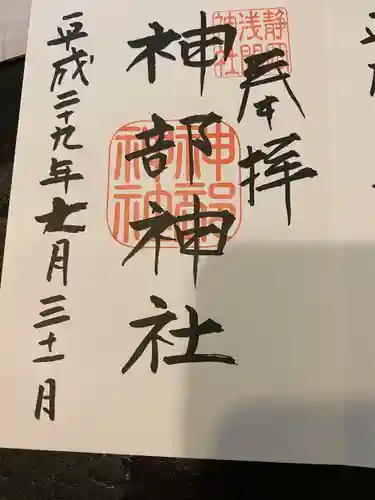 奉拝
静岡
浅間
神社
神部神社
神部
神社
平成二十九年七月三十一月